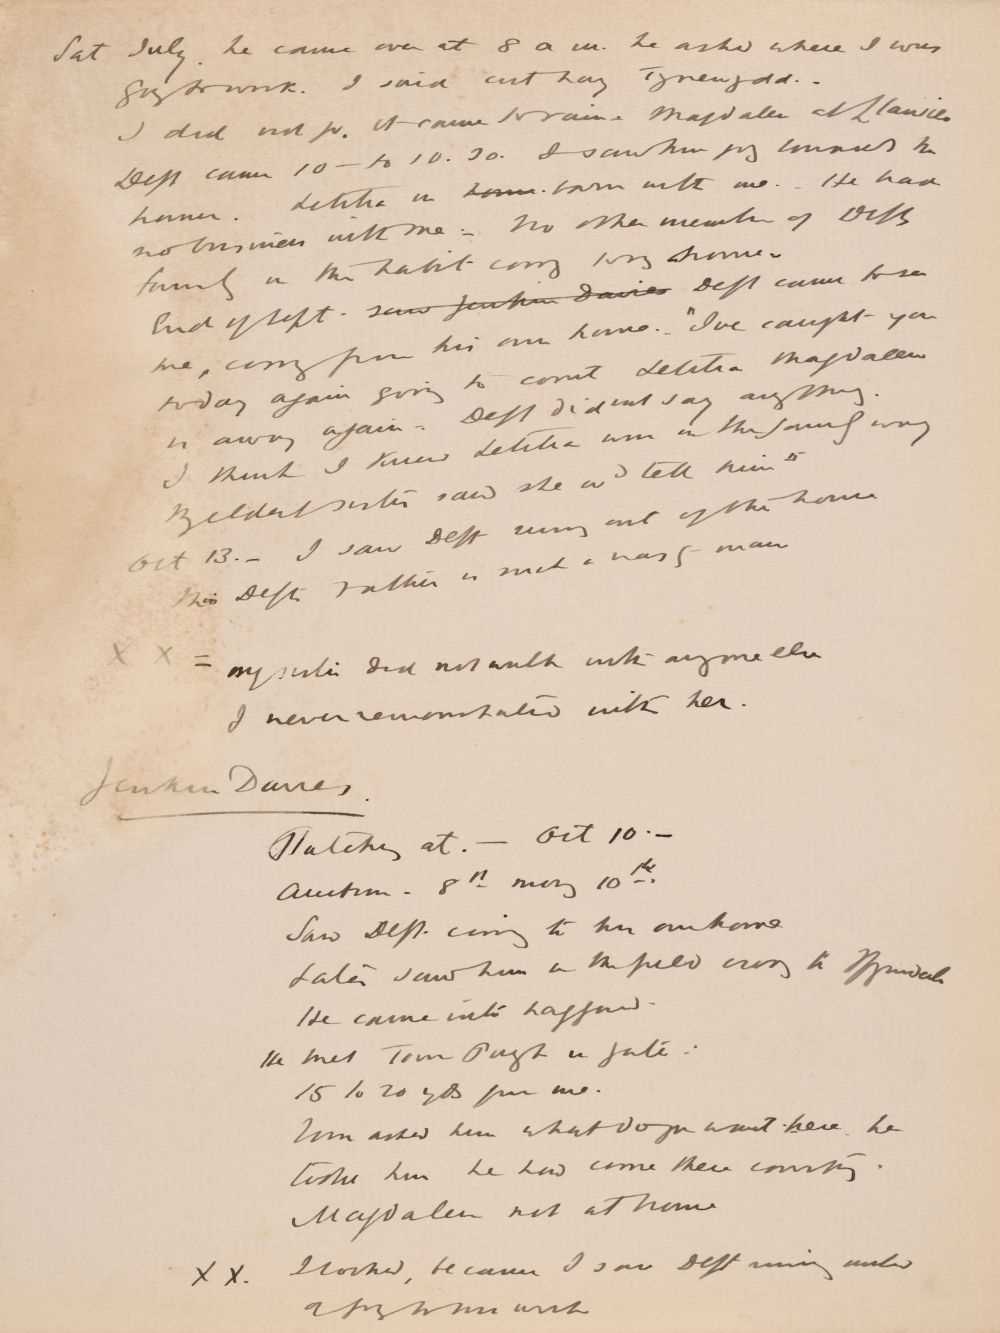 Sat July. he came over at 8 a m. he asked where I was
going to work. I said cut hay Tynewydd. -
I did not go. it came to rain = Magdalen at
Deft came 10 - to 10.30. I saw him going towards the
house. Letitia in home barn with me. - He had
no business with me = No other member of Defts
family in the habit coming to my home -
End of Sept. saw Jenkin Davies Deft came to see
me, coming from his own home. - "I've caught you
today again going to court Letitia Magdalen
is away again - Deft did not say anything.
I think I knew Letitia was in the family way
My eldest sister said she wd tell him"
Oct 13. - I saw Deft running out of the house
This Defts father is not a nasty man
X X = my sister did not walk with anyone else
I never remonstrated with her.
Jenkin Davies.
Thatching at. - Oct 10. -
Auction - 8th 10th.
Saw Deft. coming to her own home
Later saw him in the field crossing to
He came into haggard.
He met Tom Pugh in gate.
15 to 20 yds from me.
Tom asked him what do you want here. he
told him he had come there courting.
Magdalen not at home
X X. I looked, because I saw Deft running